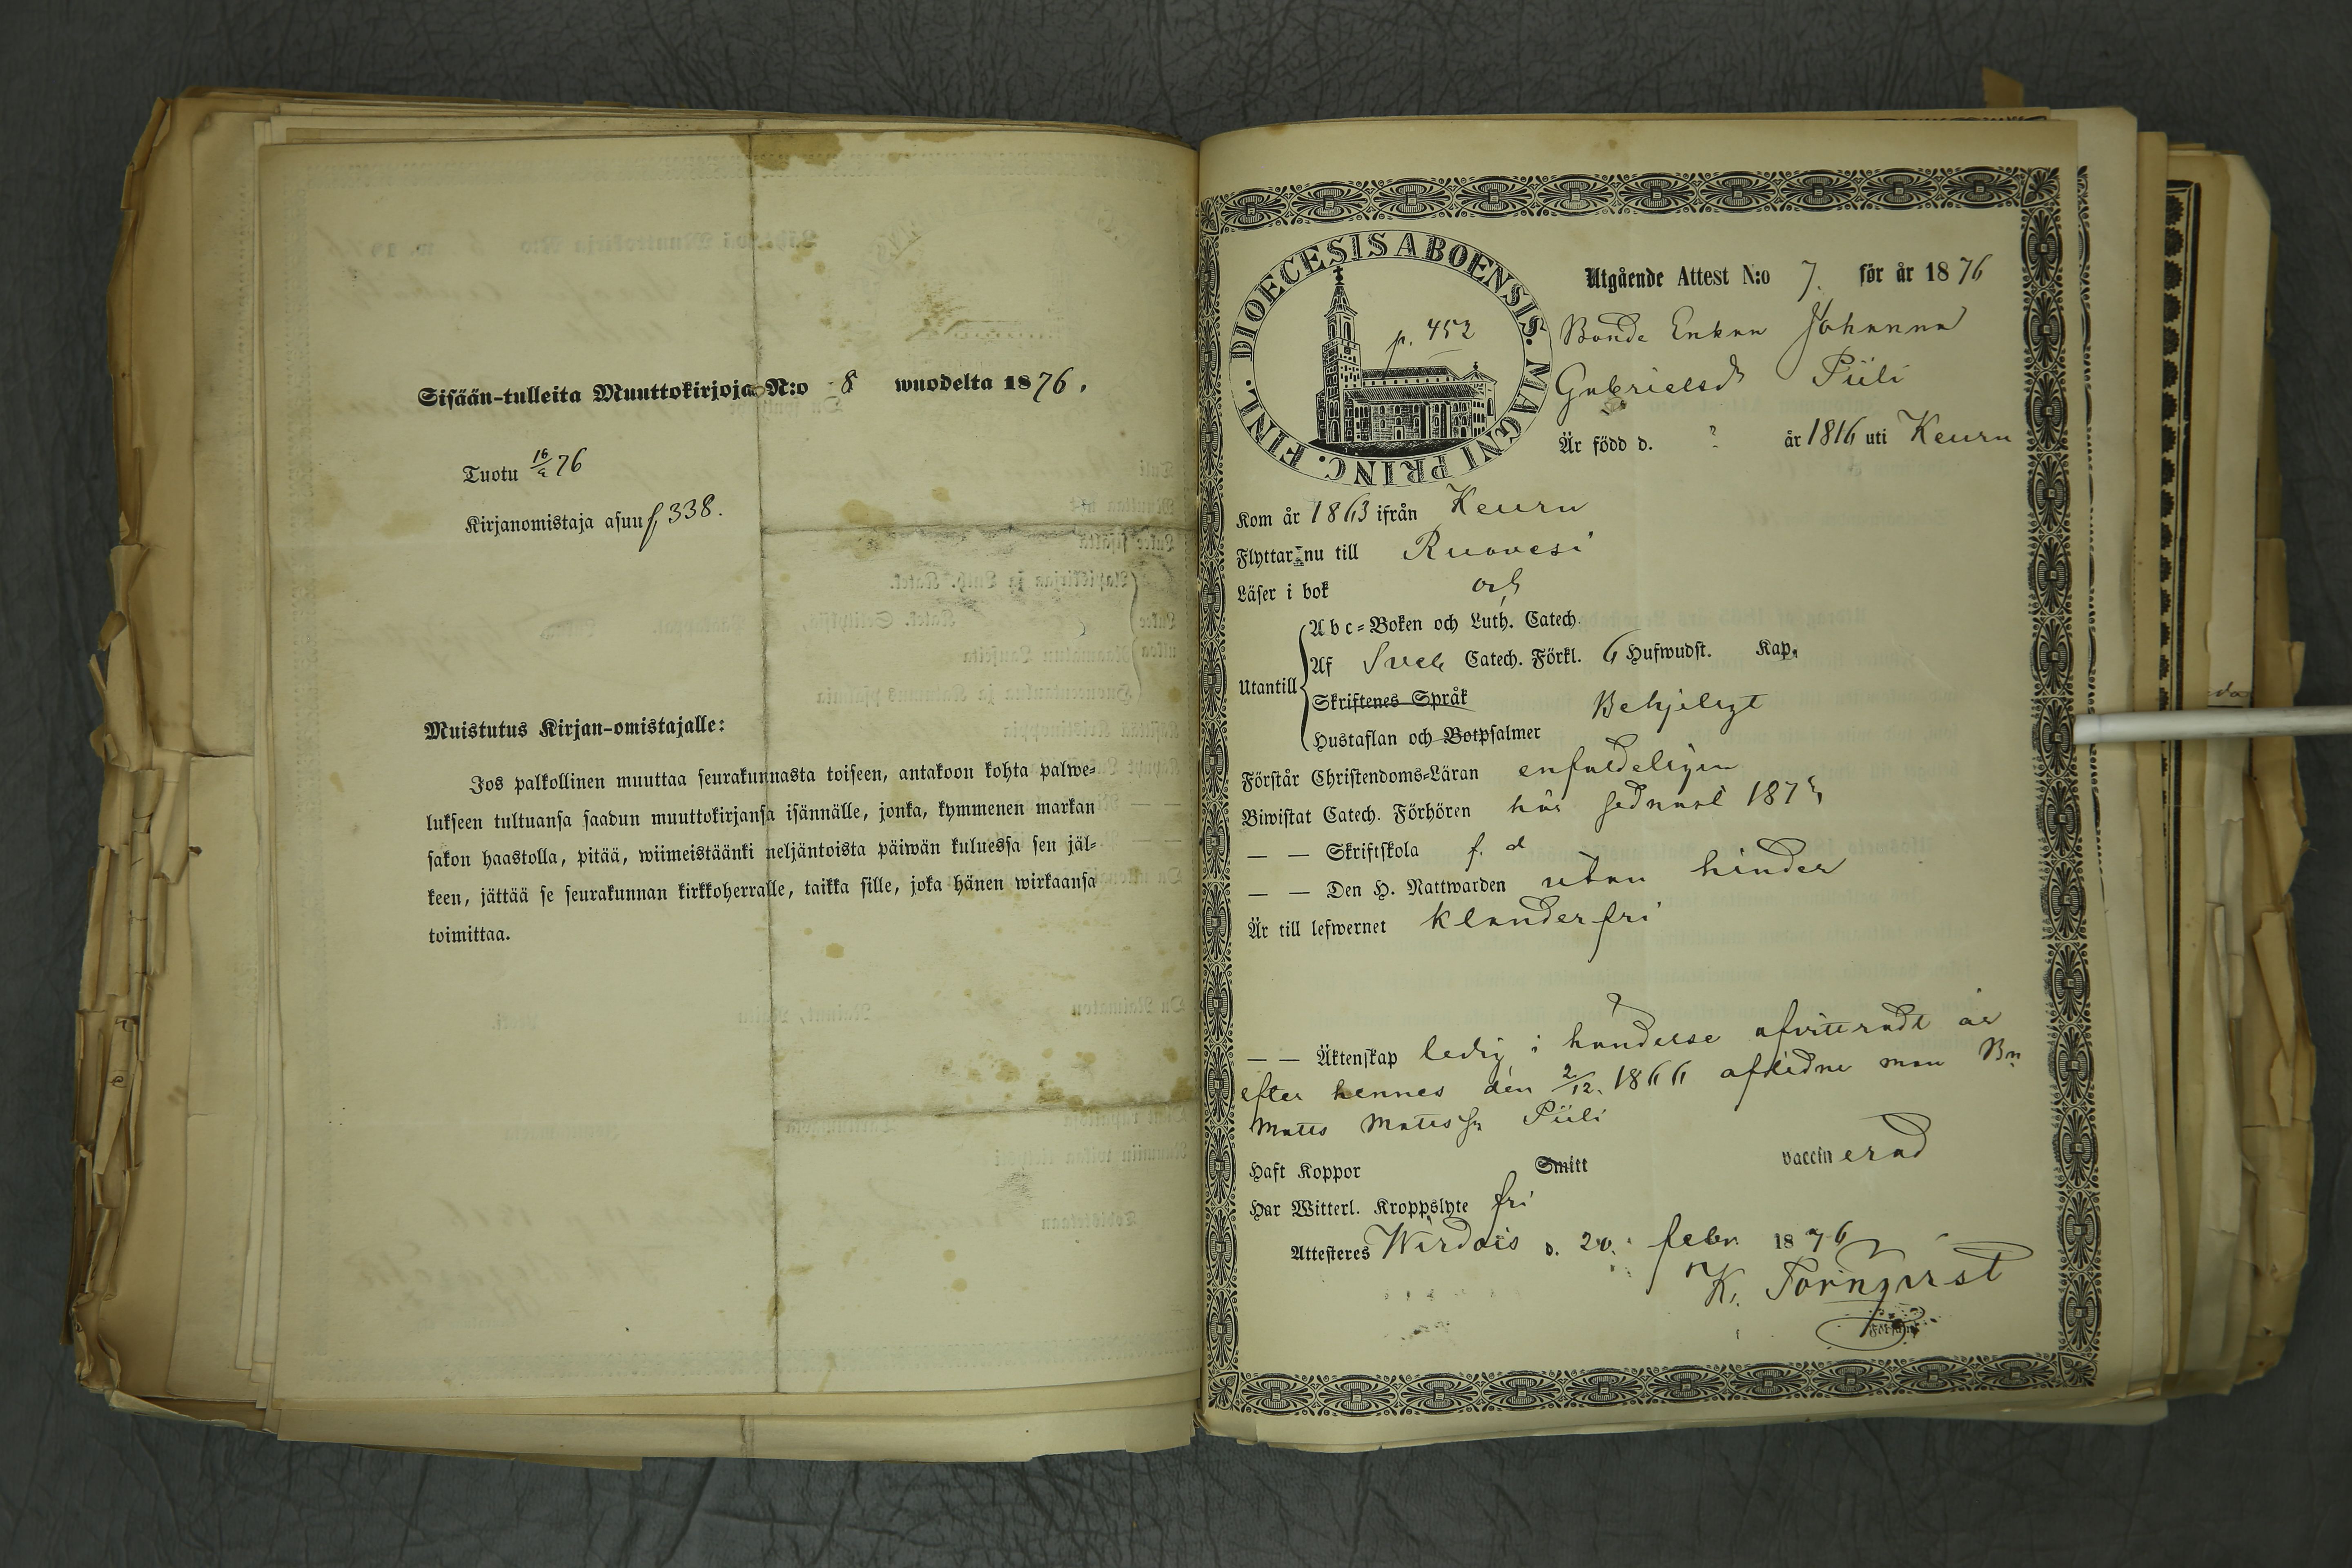 Sisään-tulleita Muuttokirjoja N:o 8 wuodelta 1876.
Tuotu 16/2 76
Kirjanomistaja asuu f, 338.
Muistutus Kirjan-omistajalle:
Jos palkollinen muuttaa seurakunnasta toiseen, antakoon kohta palwe=
lukseen tultuansa saadun muuttokirjansa isännälle, jonka, kymmenen markan
sakon haastolla, pitää, wiimeistäänki neljäntoista päiwän kuluessa sen jäl=
keen, jättää se seurakunnan kirkkoherralle, taikka sille, joka hänen wirkaansa
toimittaa.
DIOECESIS ABOENSIS. MAGNI PRINC. FINL.
p. 452
Utgående Attest N:o 7. för år 1876
Bonde Enkan Johanna
Gabrielsd Piili
Är född d. ? år 1816 uti Keuru
Kom år 1863 ifrån Keuru
Flyttar nu till Ruovesi
Läser i bok och
Utantill
Abc=Boken och Luth. Catech.
Af Sveb Catech. Förkl. 6 Hufwudst. Kap.
Skriftenes Språk Behjelpl
Hustaflan och Botpsalmer
Förstår Christendoms=Läran enfaldeligen
Biwistat Catech. Förhören här sednast 1875
— — Skriftskola f. d
— — Den H. Nattwarden utan hinder
Är till lefwernet klanderfri
— — Äktenskap ledig i händelse afvittradt är
efter hennes den 2/12. 1866 aflidne man Bn
Matts Mattss Piili
Haft Koppor Smitt vaccinerad
Har Witterl. Kroppslyte fri
Attesteres Wirdois d. 20. febr. 1876
K. Törnqvist